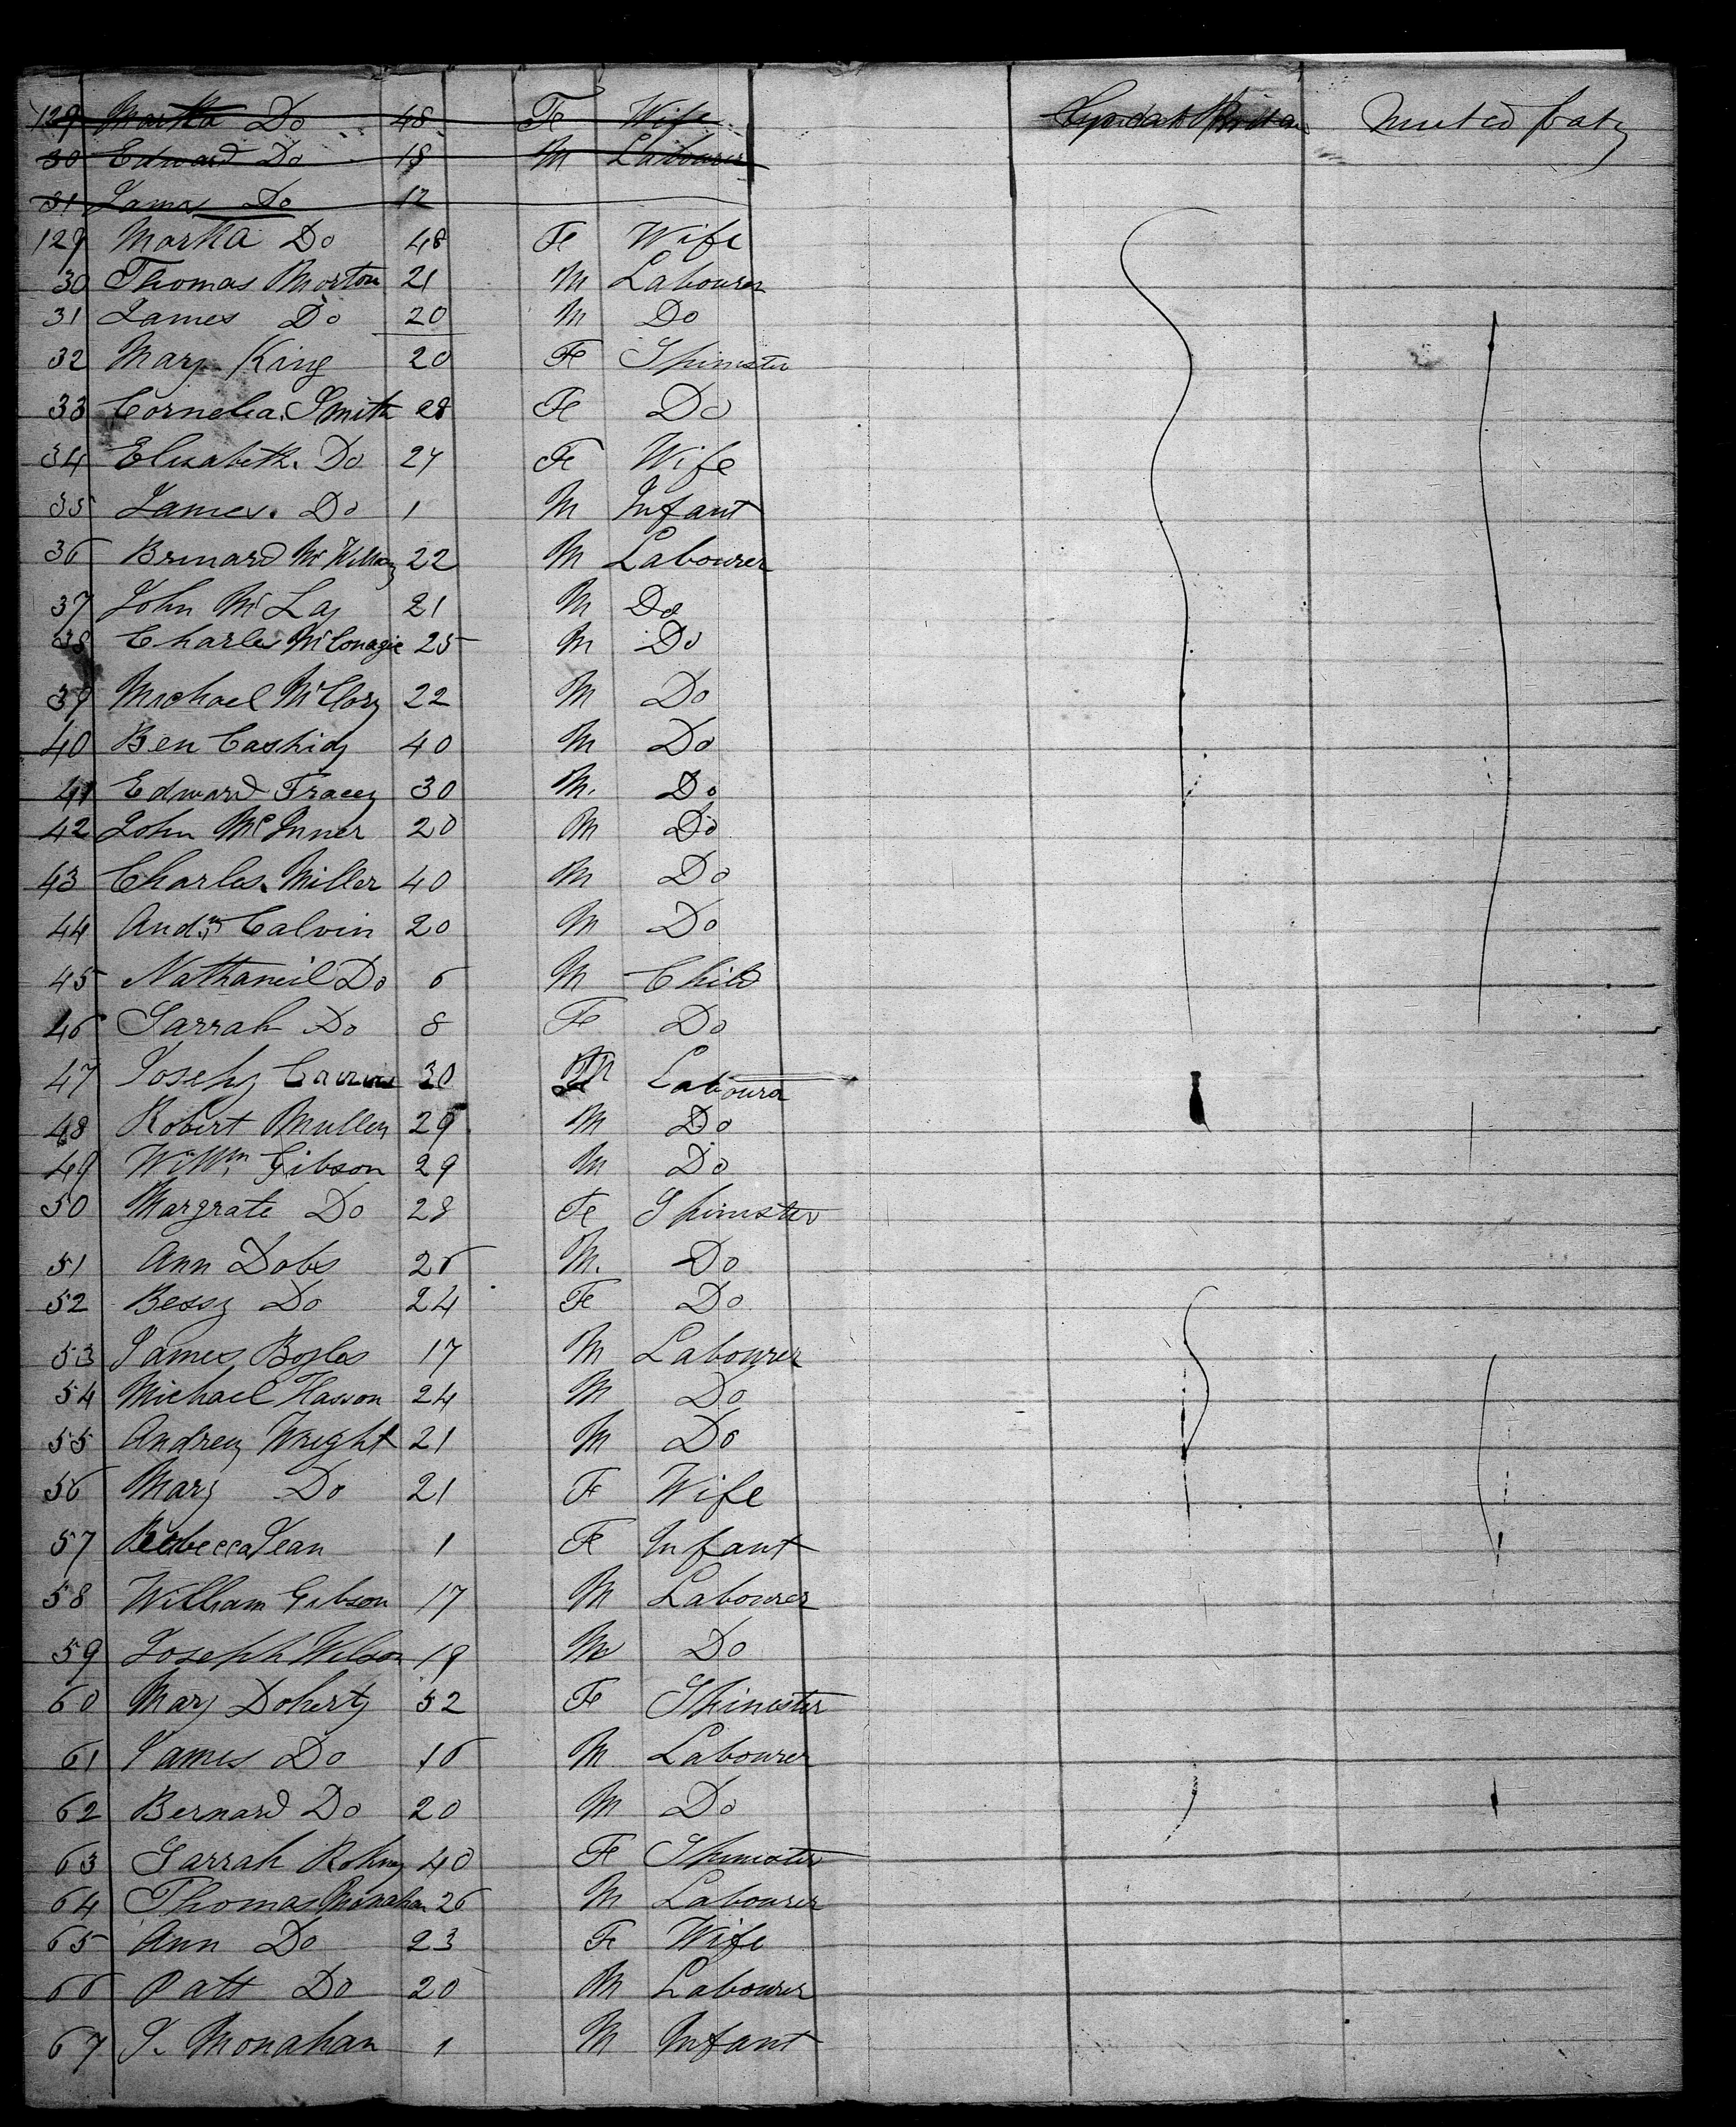 129 Martha Do 48 Fe Wife United
30 Edward Do 18 M Labourer
31 James Do 12
129 Martha Do 48 Fe Wife
30 Thomas Morton 21 M Labourer
31 James Do 20 M Do
32 Mary King 20 Fe Spinister
33 Cornelia Smith 28 Fe Do
34 Elisabeth Do 27 Fe Wife
35 James Do 1 M Infant
36 Brinard 22 M Labourer
37 John McLay 21 M Do
38 Charles McConagie 25 M Do
39 Michael McClosy 22 M Do
40 Ben Cashidy 40 M Do
41 Edward Tracey 30 M. Do
42 John McInner 20 M Do
43 Charles Miller 40 M Do
44 Andw Calvin 20 M Do
45 Nathaneil Do 6 M Child
46 Sarrah Do 8 Fe Do
47 Josehy 30 M Labourer
48 Robert Mullen 29 M Do
49 Gibson 29 M Do
50 Margrate Do 28 Fe Spinister
51 Ann Dobs 26 M. Do
52 Bessy Do 24 Fe Do
53 James Boyles 17 M Labourer
54 Michael Hasson 24 M Do
55 Andrew Wright 21 M Do
56 Mary Do 21 Fe Wife
57 Rebecca Jean 1 Fe Infant
58 William Gibson 17 M Labourer
59 Joseph Wilson 19 M Do
60 Mary Doherty 52 Fe Spinister
61 James Do 16 M Labourer
62 Bernard Do 20 M Do
63 Sarrah 40 Fe Spinister
64 Thomas Monahan 26 M Labourer
65 Ann Do 23 Fe Wife
66 Patt Do 20 M Labourer
67 J. Monahan 1 M Infant